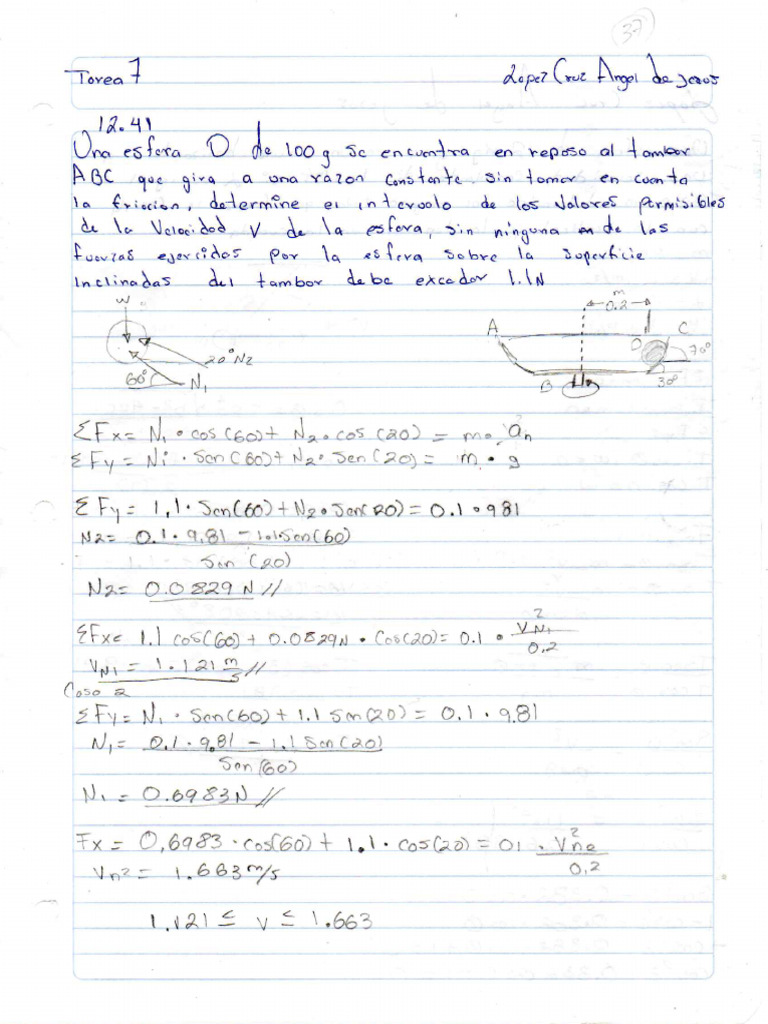 37
Tarea 7
Lopez Cruz Angel de Jesus
12.41
Una esfera D de 100 g se encuentra en reposo al tambor
ABC que gira a una razon constante sin tomar en cuenta
la friccion, determine el intervalo de los valores permisibles
de la velocidad v de la esfera, sin ninguna de las
fuerzas ejercidas por la esfera sobre la superficie
inclinadas del tambor debe excador 1.1N
W
20° N2
60°
N1
m
0.2
A
D
C
70°
B
30°
ΣFx= N1 • cos(60) + N2 • cos(20) = m • an
ΣFy= Ni • Sen(60) + N2 • Sen(20) = m • g
ΣFy = 1,1 • Sen(60) + N2 • Sen(20) = 0.1 • 981
N2= 0.1 • 9.81 - 1.1 sen(60)
Sen (20)
N2= 0.0829 N //
ΣFx= 1.1 cos(60) + 0.0829N • Cos(20) = 0.1 • VN1 2
0.2
VN1 = 1.121 m/s //
Caso 2
ΣFy= N1 • Sen(60) + 1.1 Sen(20) = 0.1 • 9.81
N1= 0.1 • 9.81 - 1.1 Sen(20)
Sen(60)
N1 = 0.6983N //
Fx = 0,6983 • cos(60) + 1.1 • cos(20) = 01 • Vn2 2
0,2
Vn2 = 1.663 m/s
1.121 ≤ v ≤ 1.663